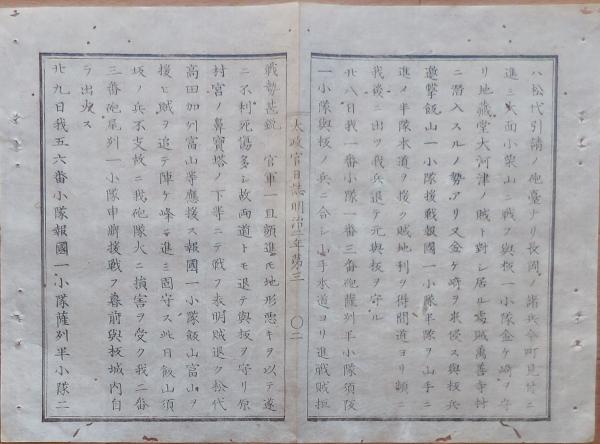 ハ松代引請ノ砲臺ナリ長岡ノ諸兵今町見付ニ
進ミ大面小栗山ニ戰フ與板一小隊金ケ崎ヲ守
リ地藏堂大河津ノ賊ト對シ居ル處賊萬善寺村
ニ潛入スルノ勢アリ又金ケ崎ヲ來侵ス與板兵
邀撃飯山一小隊援戰報國一小隊半隊ヲ山手ニ
進メ半隊水道ヲ援ク賊地利ヲ得間道ヨリ頻ニ
我後ニ出ツ我兵退テ元與板ヲ守ル
廿八日我一番小隊一番三番砲薩州半小隊須坂
一小隊與板ノ兵ニ合シ山手水道ヨリ進戰賊拒
太政官日誌明治二年第三 〇二
戰勢甚鋭 官軍一旦頗進モ地形惡キヲ以テ遂
ニ不利死傷多シ故両道トモ退テ與板ヲ守リ原
村宮ノ鼻寶塔ノ下等ニテ戰フ未明賊退ク松代
高田加州富山等應援ス報國一小隊飯山富山ヲ
援ヒ賊ヲ追テ陣ケ峰ニ進ミ固守ス此日飯山須
坂ノ兵不支故ニ我砲隊大ニ損害ヲ受ク我二番
三番砲尾州一小隊申牌援戰フ暮前與板城内自
ラ出火ス
廿九日我五六番小隊報國一小隊薩州半小隊二